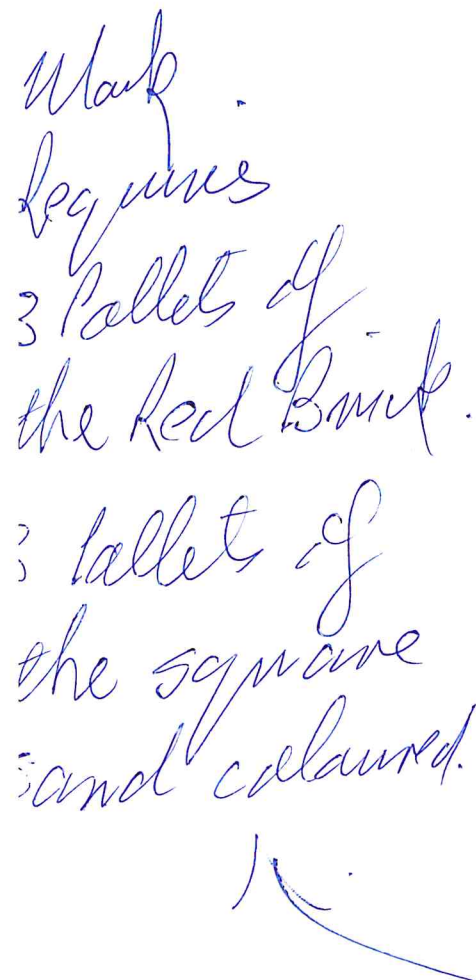 Mark.
Requires
3 Pallets of
the Red Brick.
3 Pallets of
the square
sand coloured.